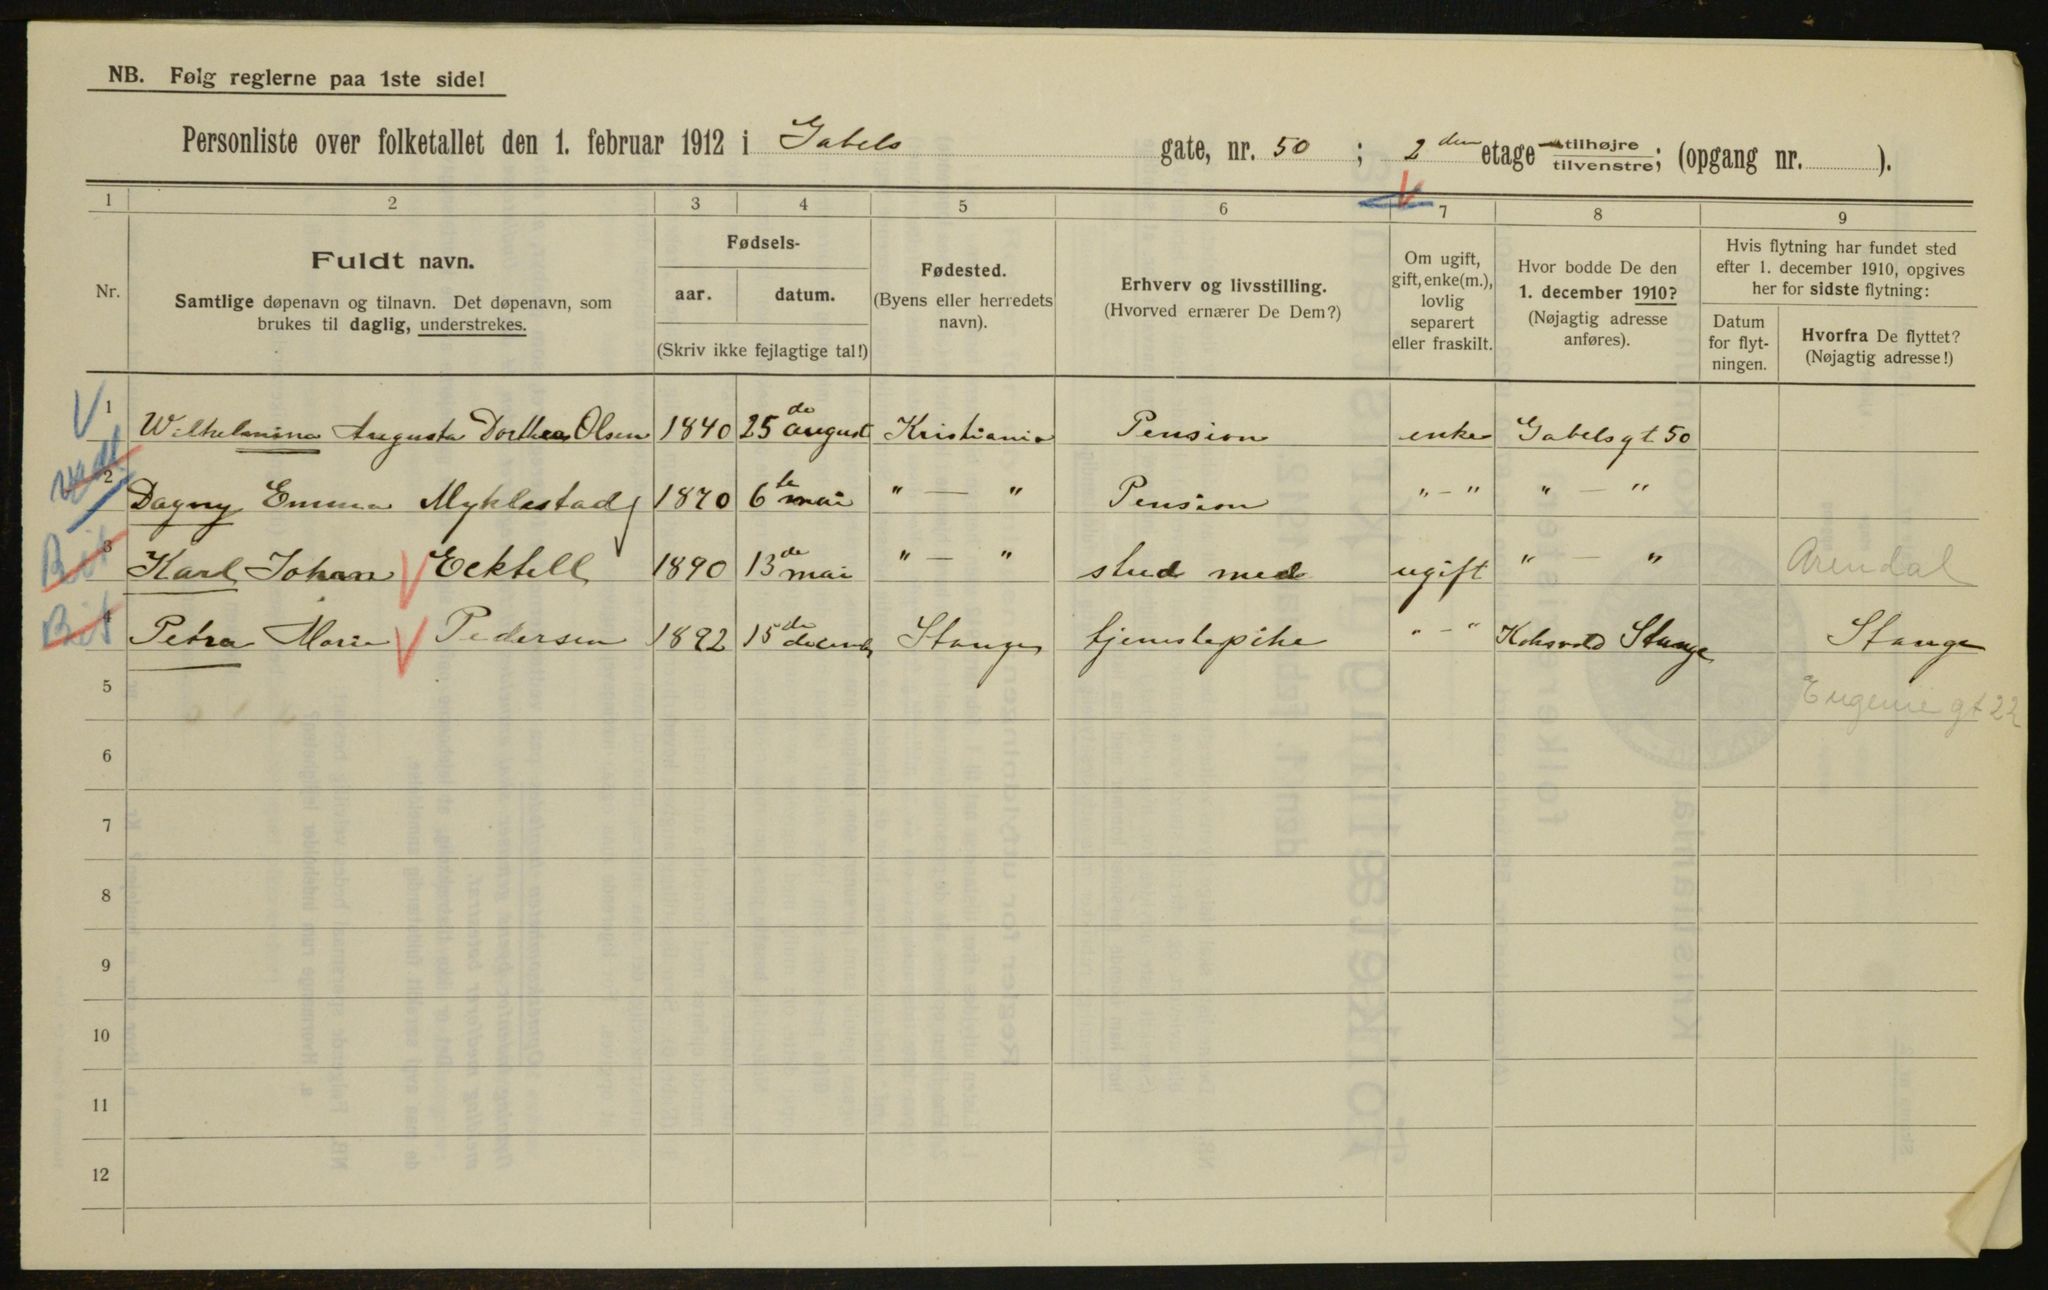 NB. Følg reglerne paa 1ste side!
Personliste over folketallet den 1. februar 1912 i Gabels gate, nr. 50 ; 2 den etage tilhøjre tilvenstre; (opgang nr. ).
1 2 3 4 5 6 7 8 9
Nr.
Fuldt navn.
Samtlige døpenavn og tilnavn. Det døpenavn, som
brukes til daglig, understrekes.
Fødsels-
aar. datum.
(Skriv ikke fejlagtige tal!)
Fødested.
(Byens eller herredets
navn).
Erhverv og livsstilling.
(Hvorved ernærer De Dem?)
Om ugift,
gift, enke(m.),
lovlig
separert
eller fraskilt.
Hvor bodde De den
1. december 1910?
(Nøjagtig adresse
anføres).
Hvis flytning har fundet sted
efter 1. december 1910, opgives
her for sidste flytning:
Datum
for flyt-
ningen.
Hvorfra De flyttet?
(Nøjagtig adresse!)
1 Wilhelmina Augusta Dorthea Olsen 1840 25de august Kristiania Pension enke Gabelsgt 50
2 Dagny Emma Myklestad 1870 6te mai " — " Pension " — " " — "
Bit 3 Karl Johan Ecktell 1890 13de mai " — " stud med ugift " — " Arendal
Bit 4 Petra Marie Pedersen 1892 15de decemb Stange tjenestepike " — " Stange Stange
5 Eugenie gt 22
6
7
8
9
10
11
12